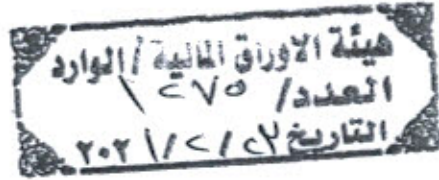 هيئة الاوراق المالية / الوارد
العدد/ ١٢٧٥
التاريخ ٢٣/٢/٢٠٢١